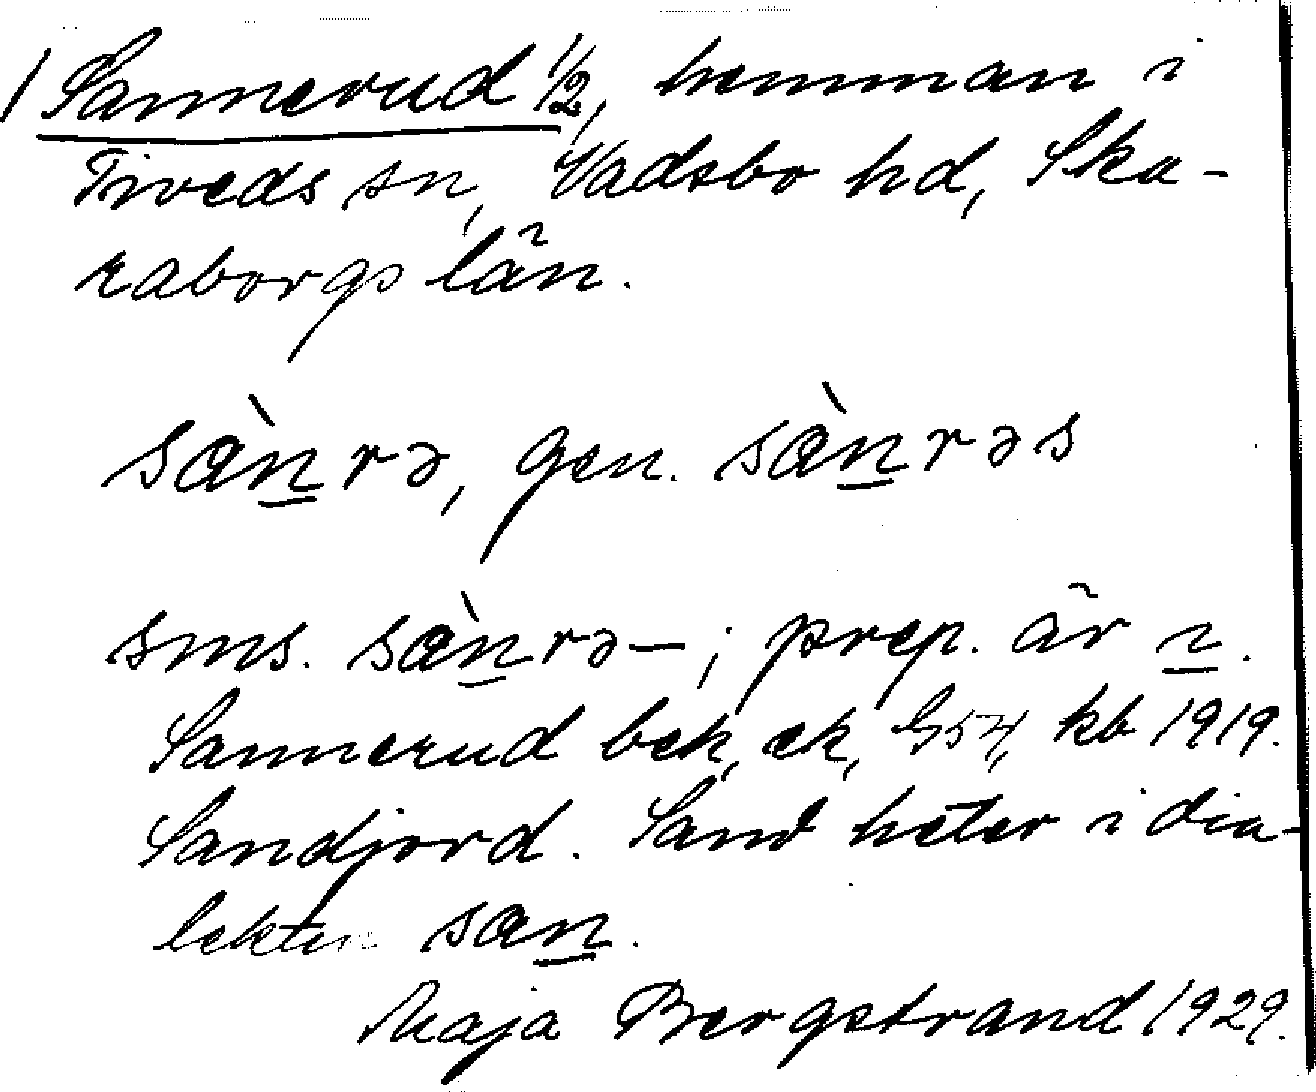 1 Sannerud 1/2, hemman i
Tiveds sn, Vadsbo hd, Ska-
raborgs län.
sàn̲rə, gen. sàn̲rəs
sms. sàn̲rə-; prep. är i̲.
Sannerud bek, ek, G54, kb 1919.
Sandjord. Sand heter i dia-
lekten san̲.
Maja Bergstrand 1929.